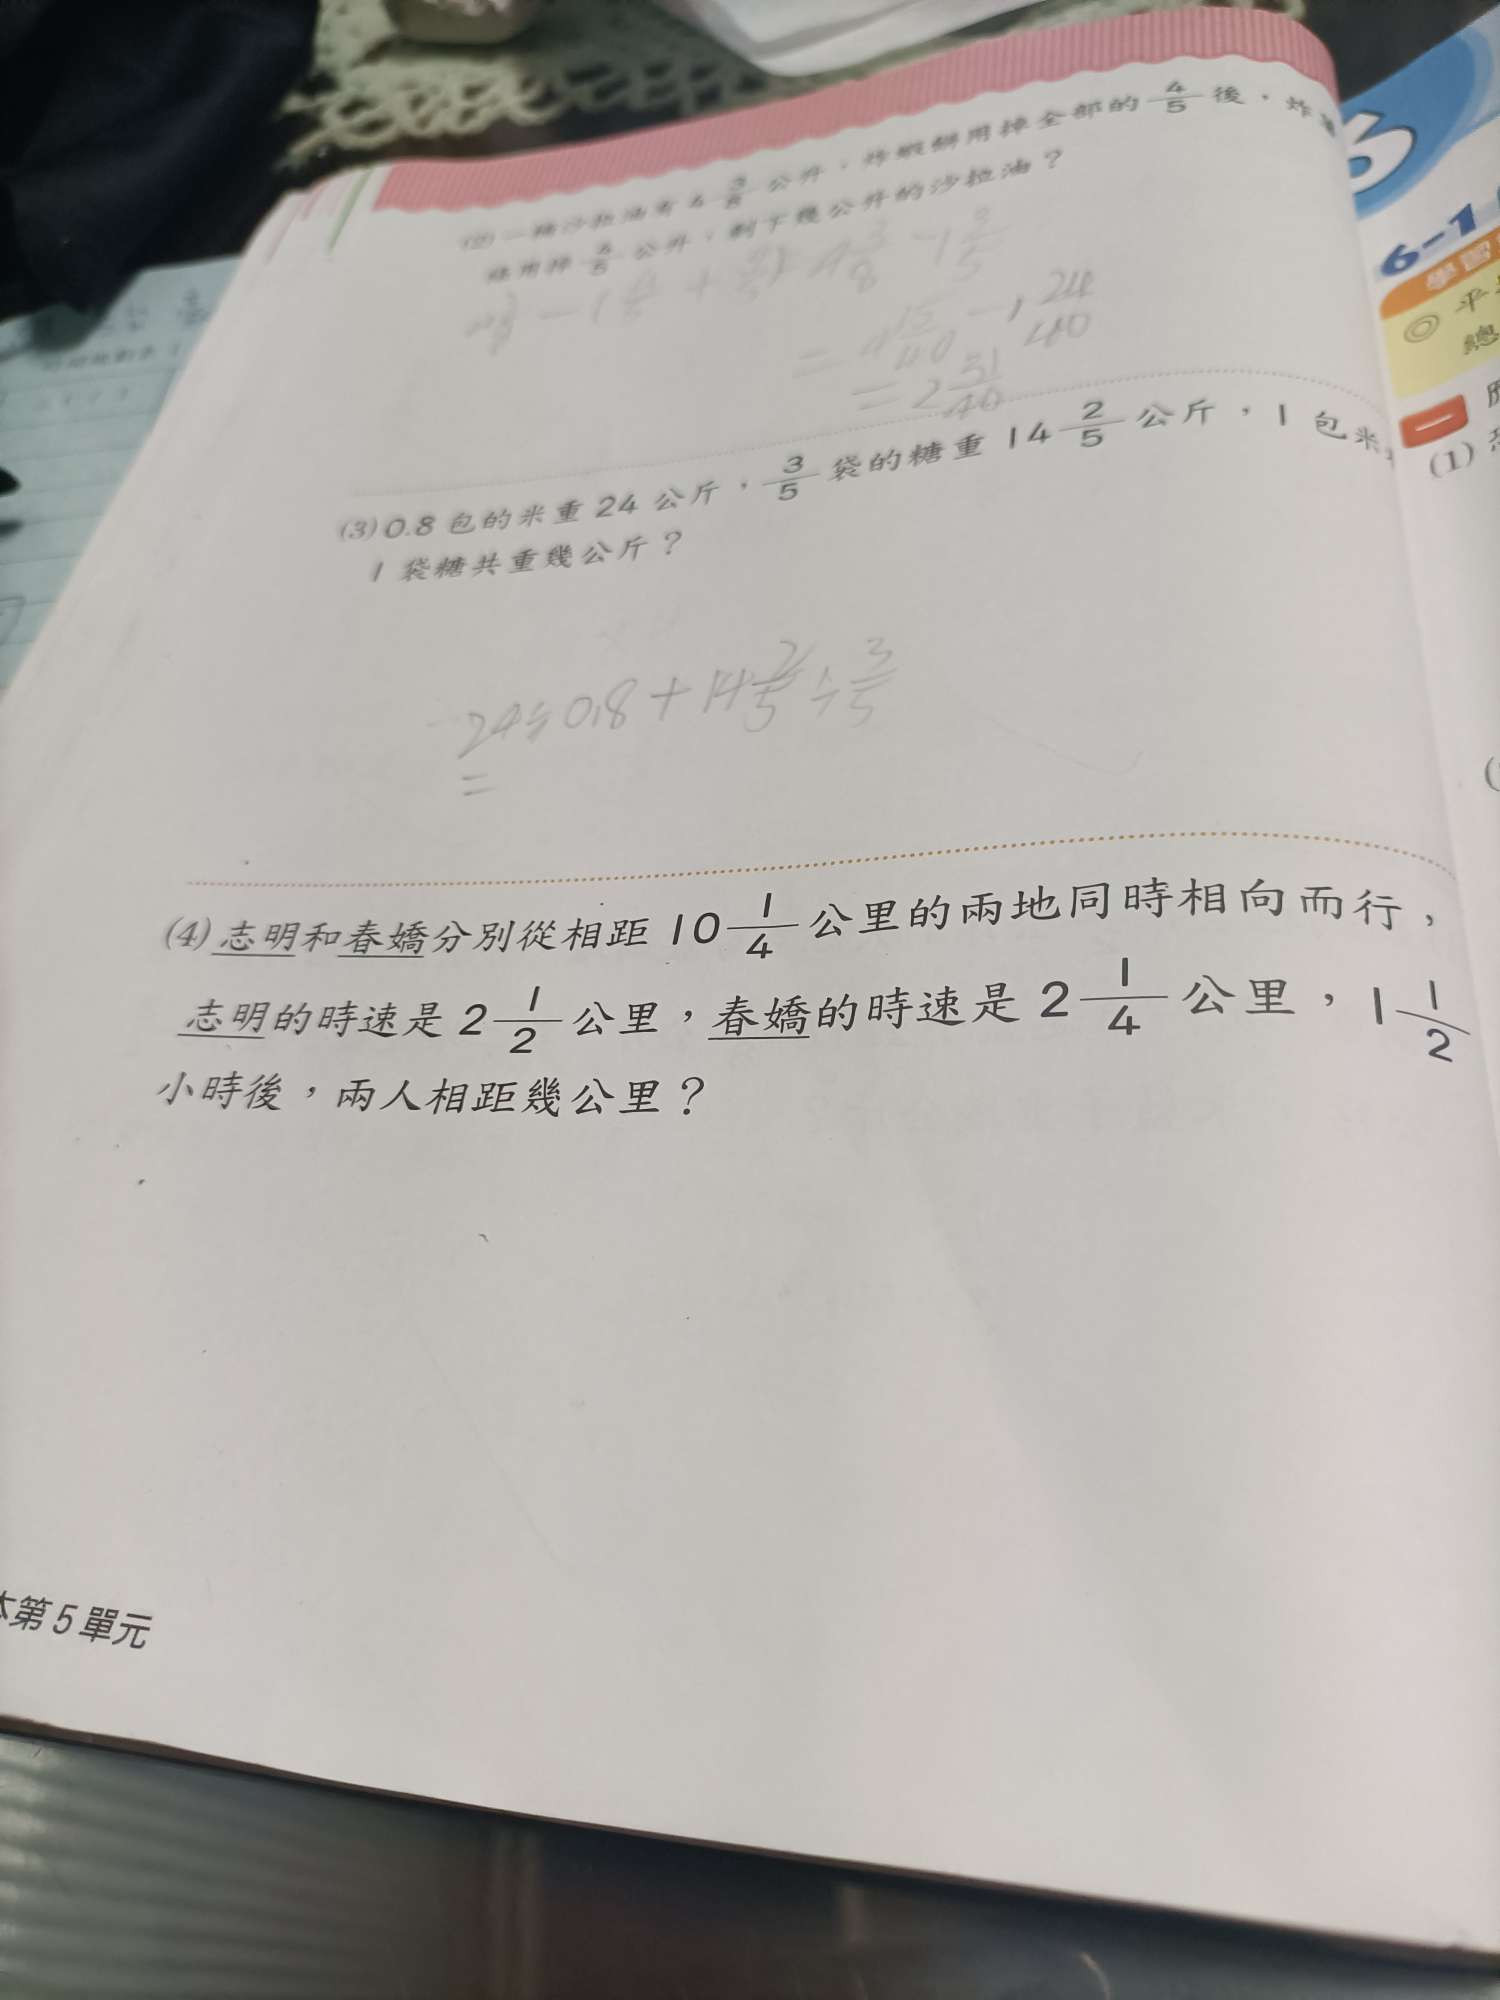 (2)一桶沙拉油有4 3/8 公升，炸蝦餅用掉全部的 4/5 後，炸
用掉 3/5 公升，剩下幾公升的沙拉油？
4 3/8 - 1 3/5
= 4 15/40 - 1 24/40
= 2 31/40
(3) 0.8 包的米重 24 公斤，3/5 袋的糖重 14 2/5 公斤，1 包米
1 袋糖共重幾公斤？
24÷0.8+14 2/5÷3/5
=
(4) 志明和春嬌分別從相距 10 1/4 公里的兩地同時相向而行，
志明的時速是 2 1/2 公里，春嬌的時速是 2 1/4 公里，1 1/2
小時後，兩人相距幾公里？
本第 5 單元
6
6-1
學習
◎ 平
總
一
(1)